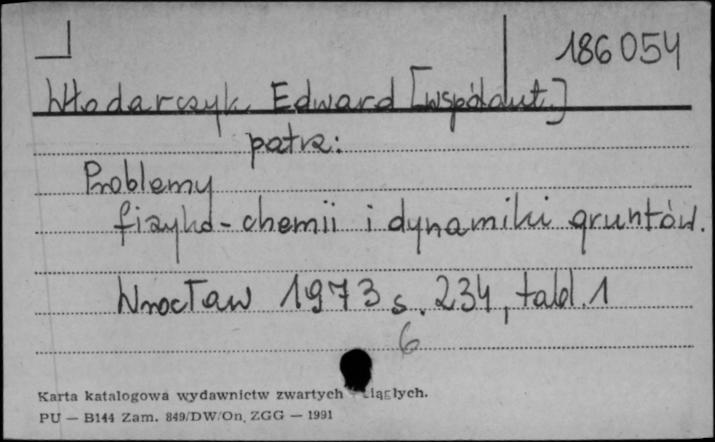 186054
Włodarczyk Edward [współaut.]
patrz:
Problemy
fizyko-chemii i dynamiki gruntów.
Wrocław 1973 s. 234, tabl. 1
6
Karta katalogowa wydawnictw zwartych ciągłych.
PU — B144 Zam. 849/DW/On. ZGG — 1991